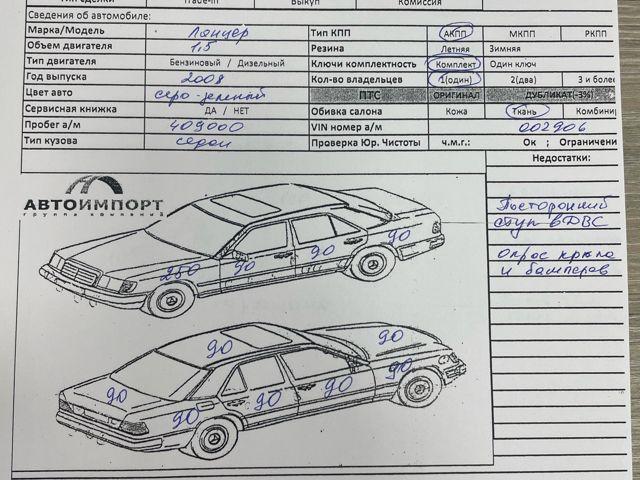 Тип сделки Trade-in Выкуп Комиссия
Сведения об автомобиле:
Марка/Модель Лансер Тип КПП АКПП МКПП РКПП
Объем двигателя 1,5 Резина Летняя Зимняя
Тип двигателя Бензиновый / Дизельный Ключи комплектность Комплект Один ключ
Год выпуска 2008 Кол-во владельцев 1(один) 2(два) 3 и более
Цвет авто серо-зеленый ПТС ОРИГИНАЛ ДУБЛИКАТ(-3%)
Сервисная книжка ДА / НЕТ Обивка салона Кожа Ткань Комбини
Пробег а/м 409000 VIN номер а/м 002906
Тип кузова седан Проверка Юр. Чистоты ч.м.г.: Ок ; Ограничени
Недостатки:
АВТОИМПОРТ
группа компаний
Посторонний
стук в ДВС
окрас крыла
и бамперов
250 90 90 90
90 90
90 90 90 90 90